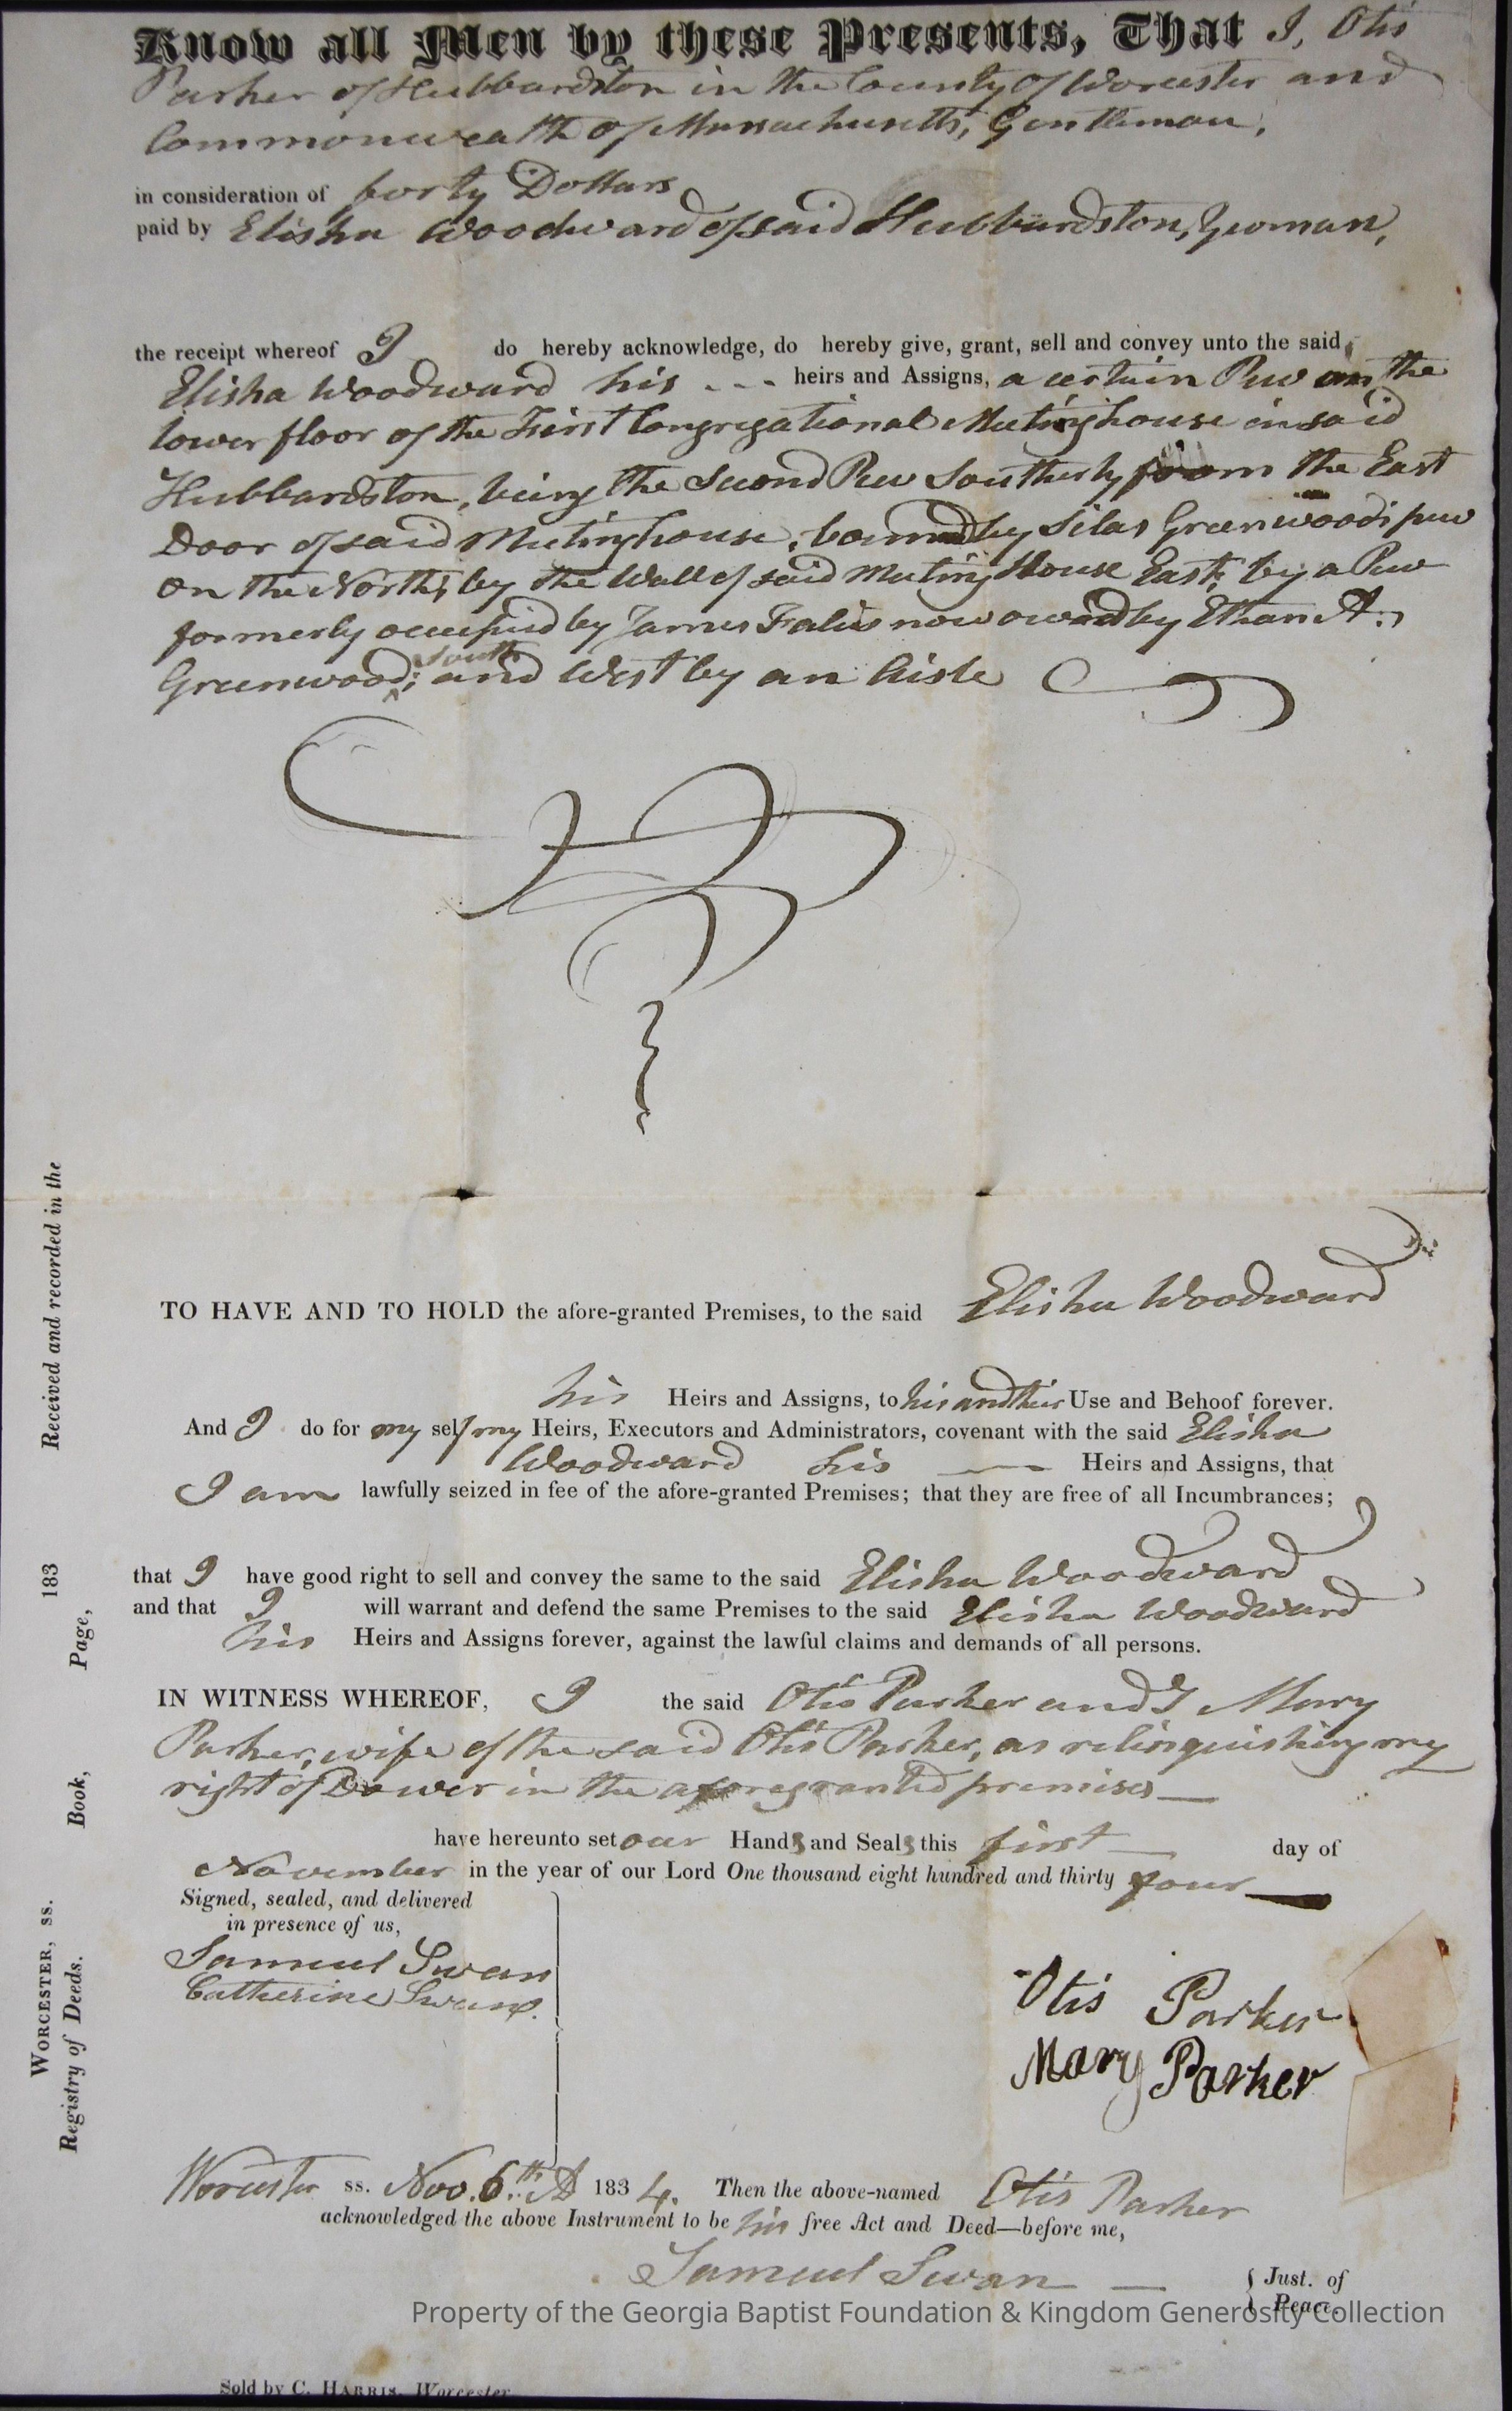 Know all Men by these Presents, That I, Otis
Parker of Hubbardston in the County of Worcester and
Commonwealth of Massachusetts, Gentleman,
in consideration of forty Dollars
paid by Elisha Woodward of said Hubbardston, Yeoman,
the receipt whereof I do hereby acknowledge, do hereby give, grant, sell and convey unto the said,
Elisha Woodward his - - - heirs and Assigns, a certain Pew on the
lower floor of the First Congregational Meetinghouse in said
Hubbardston, being the Second Pew Southerly from the East
Door of said Meetinghouse, bound by Silas Greenwood's pew
on the North; by the Wall of said Meeting House East; by a Pew
formerly occupied by James now owned by Ethan A.
south
Greenwood; ^ and West by an Aisle
TO HAVE AND TO HOLD the afore-granted Premises, to the said Elisha Woodward
his Heirs and Assigns, to his and their Use and Behoof forever.
And I do for my self my Heirs, Executors and Administrators, covenant with the said Elisha
Woodward his — Heirs and Assigns, that
I am lawfully seized in fee of the afore-granted Premises; that they are free of all Incumbrances;
that I have good right to sell and convey the same to the said Elisha Woodward
and that I will warrant and defend the same Premises to the said Elisha Woodward
his Heirs and Assigns forever, against the lawful claims and demands of all persons.
IN WITNESS WHEREOF, I the said Otis Parker and I Mary
Parker, wife of the said Otis Parker, as relinquishing my
right of Dower in the aforegranted premises —
have hereunto set our Hands and Seals this first — day of
November in the year of our Lord One thousand eight hundred and thirty four —
Signed, sealed, and delivered
in presence of us,
Samuel Swan
Catherine Swan.
Otis Parker
Mary Parker
Worcester ss. Nov. 6th. A 1834. Then the above-named Otis Parker
acknowledged the above Instrument to be his free Act and Deed—before me,
Samuel Swan — { Just. of
Peace.
Property of the Georgia Baptist Foundation & Kingdom Generosity Collection
Sold by C. HARRIS, Worcester
WORCESTER, ss. 183 Received and recorded in the
Registry of Deeds. Book, Page,